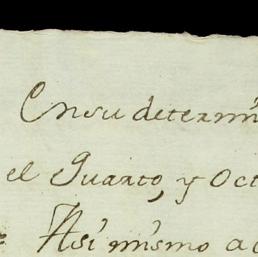 Ensu determin
el Quarto, y Oct
Asi mismo ac